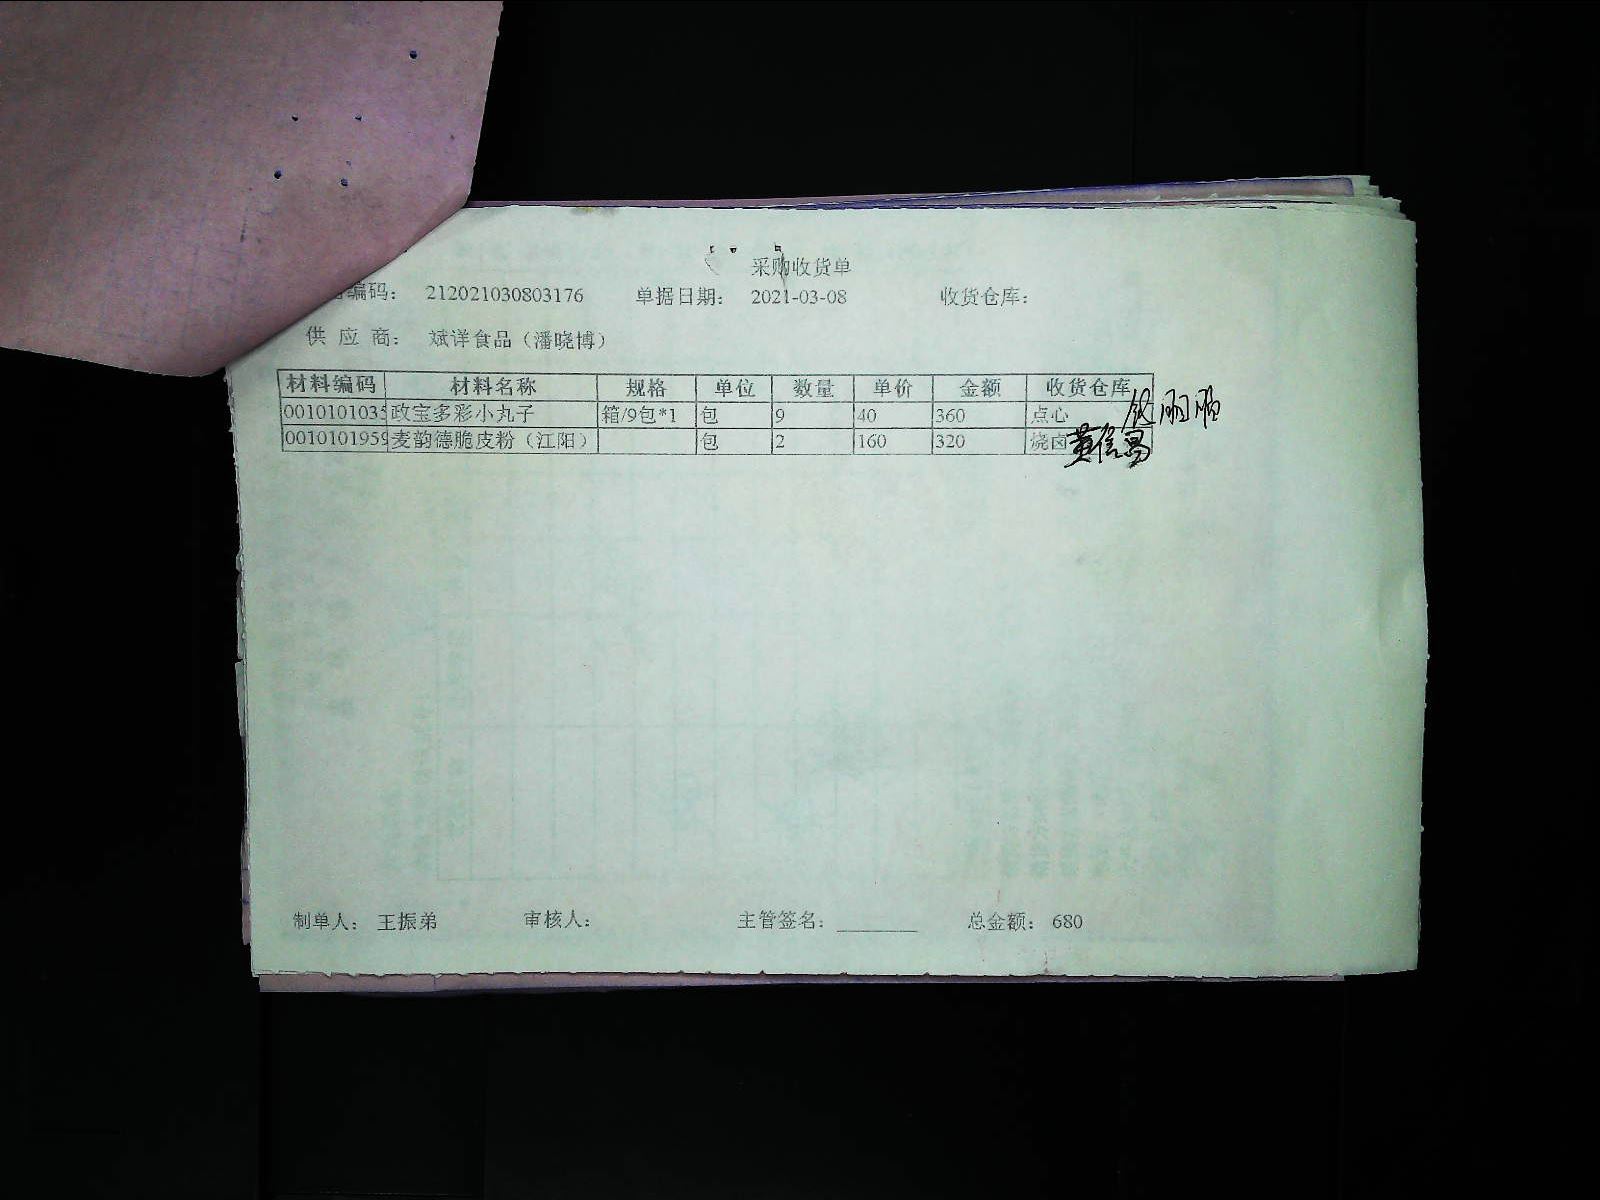 采购收货单
编码： 212021030803176 单据日期： 2021-03-08 收货仓库：
供 应 商： 斌洋食品（潘晓博）
材料编码 材料名称 规格 单位 数量 单价 金额 收货仓库
0010101035 政宝多彩小丸子 箱/9包*1 包 9 40 360 点心
0010101959 麦韵德脆皮粉（江阳） 包 2 160 320 烧卤
制单人： 王振弟 审核人： 主管签名： 总金额： 680